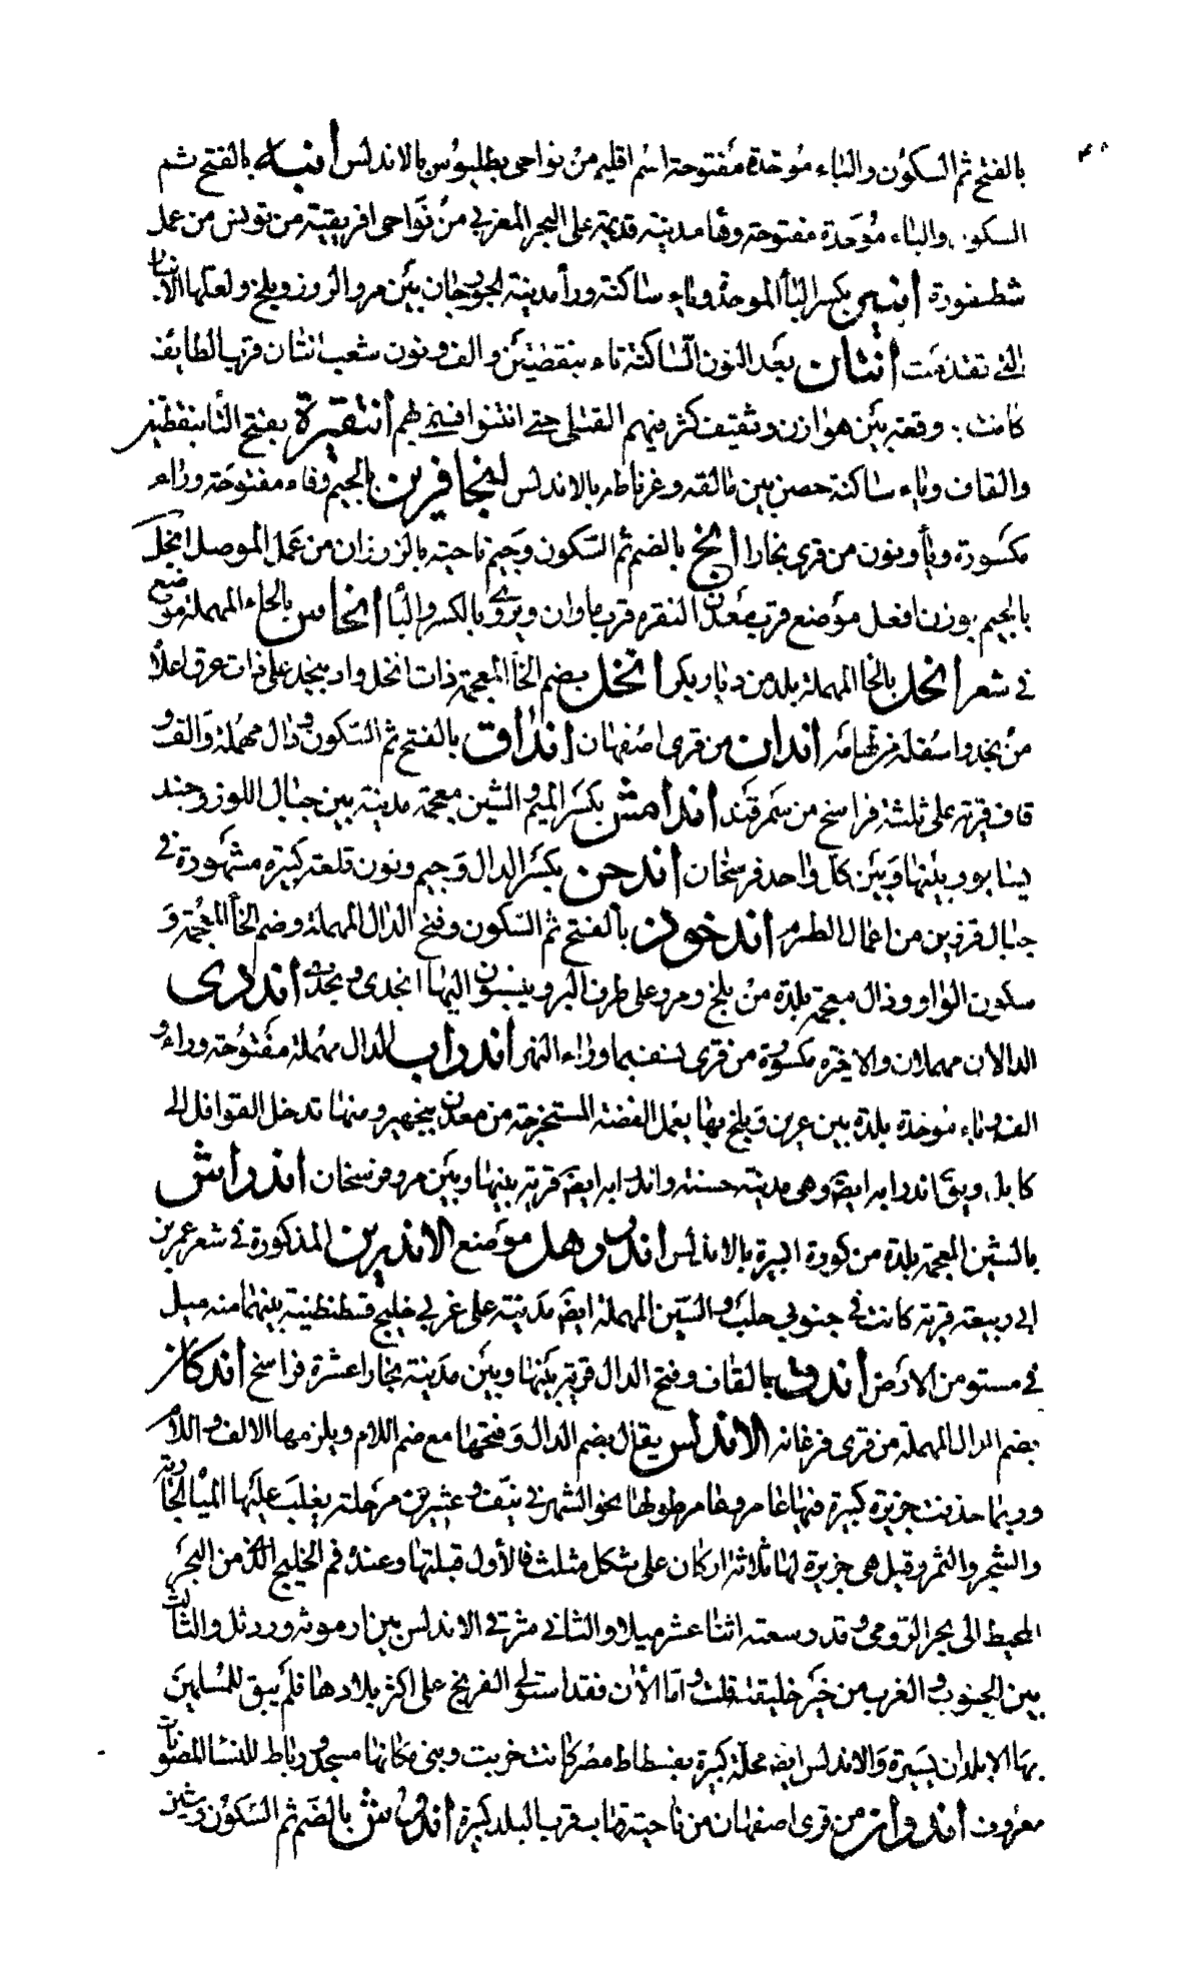 بالفتح ثم السكون والباء موحدة مفتوحة اسم اقليم من نواحى بطليوس بالاندلس انبه بالفتح ثم
السكون والباء موحدة مفتوحة وها مدينة قديمة على البحر المغربي من نواحى افريقية من تونس من عمل
شطفورة انبير بكسر البأ الموحدة وياء ساكنة ورأ مدينة لجوزجان بين مرو الروز وبلخ ولعلها الانبار
التى تقدمت انتان بعد النون الساكنة تاء بنقطتين والف ونون شعب انتان قرب الطايف
كانت به وقعة بين هوازن وثقيف كثر فيهم القتلى حتى انتنوا انتقيرة بفتح التا بنقطتين
والقاف وياء ساكنة حصن بين مالقه وغرناطه بالاندلس انجافرين بالجيم وفاء مفتوحة وراء
مكسورة ويأ ونون من قرى بخارا انج بالضم ثم السكون وجيم ناحية بالزرزان من عمل الموصل انجل
بالجيم بوزن افعل موضع قرب معدن النقره قرب ماوان ويروى بالكسر والبأ انحاص بالحاء المهملة موضع
فى شعر انحل بالحا المهملة بلد من ديار بكر انخل بضم الخا المعجمة ذات انخل واد بنجد على ذات عرق اعلاه
من نجد واسفله من تهامه اندان من قرى اصفهان انداق بالفتح ثم السكون ودال مهملة والف و
قاف قرية على ثلثة فراسخ من سمرقند اندامش بكسر الميم والشين معجمة مدينة بين جبال اللوز وجند
يسابور بينها وبين كل واحد فرسخان اندجن بكسر الدال وجيم ونون قلعة كبيرة مشهورة فى
جبال قزوين من اعمال الطرم اندخوذ بالفتح ثم السكون وفتح الدال المهملة وضم الخأ المعجمة و
سكون الواو وذال معجمة بلدة من بلخ ومرو على طرف البر وينسبون اليها انخدى ونخدى انددى
الدالان مهملان والاخيره مكسورة من قرى نسف بما وراء النهر اندراب الدال مهملة مفتوحة وراء و
الف وباء موحدة بلدة بين غزنين وبلخ بها يعمل الفضة المستخرجة من معدن بنجهير ومنها تدخل القوافل الى
كابل ويق اندرابه ايضا وهى مدينة حسنة واندرابه ايضا قرية بينها وبين مرو فرسخان اندراش
بالشين المعجمة بلدة من كورة البيرة بالاندلس اندرهل موضع الاندرين المذكورة فى شعر عمر بن
ابى ربيعة قرية كانت فى جنوبي حلب والسين المهملة ايضا مدينة على غربي خليج قسطنطينية بينهما منه ميل
فى مستو من الارض اندق بالقاف وفتح الدال قرية بينها وبين مدينة بخارا عشرة فراسخ اندكان
بضم الدال المهملة من قرى فرغانه الاندلس يقال بضم الدال وفتحها مع ضم اللام ويلزمها الالف واللام
وربما حذفت جزيرة كبيرة فيها عامر وغامر طولها نحو الشهر فى نيف وعشرين مرحلة يغلب عليها المياه الجارية
والشجر والثمر وقيل هى جزيرة لها ثلاثة اركان على شكل مثلث فالأول قبلتها وعنده فم الخليج الخارج من البحر
المحيط الى بحر الرومى وقدر سعته اثنا عشر ميلا والثانى شرقى الاندلس بين اربونة ورذيل والثالث
بين الجنوب والغرب من حيز جليقية قلت واما الأن فقد استولى الفرنج على اكثر بلادها فلم يبق للمسلمين
بها الا بلدان يسيرة والاندلس ايضا محلة كبيرة بفسطاط مصر كانت خربت وبنى مكانها مسجد ورباط للنسا المضافات
معروف اندوان من قرى اصفهان من ناحية قهاب قرب البلد كبيرة اندوش بالضم ثم السكون وشين